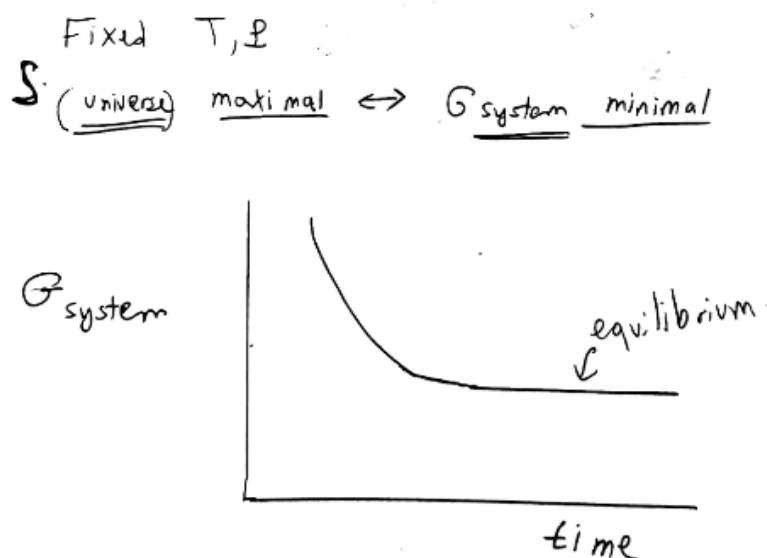 Fixed T, P
S (universe) maximal ↔ G system minimal
G system
equilibrium
time